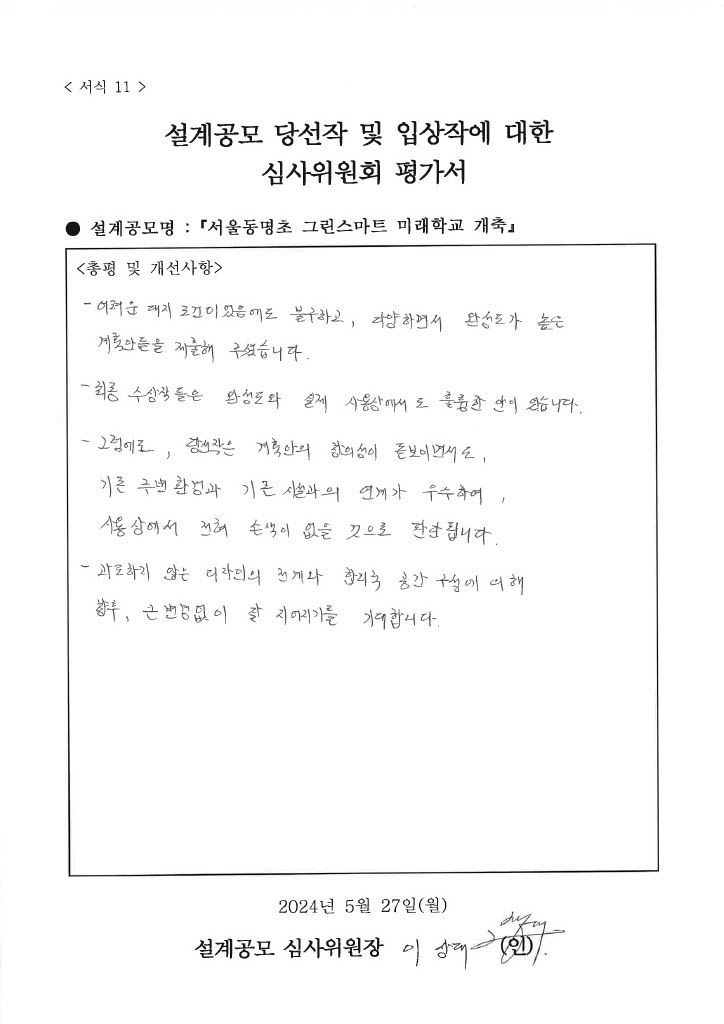 < 서식 11 >
설계공모 당선작 및 입상작에 대한
심사위원회 평가서
● 설계공모명 : 『서울동명초 그린스마트 미래학교 개축』
<총평 및 개선사항>
- 어려운 대지 조건이 있음에도 불구하고, 다양하면서 완성도가 높은
계획안들을 제출해 주셨습니다.
- 최종 수상작들은 완성도와 실제 사용상에서도 훌륭한 안이 였습니다.
- 그럼에도, 당선작은 계획안의 창의성이 돋보이면서도,
기존 주변환경과 기존 시설과의 연계가 우수하며,
사용상에서 전혀 손색이 없을 것으로 판단됩니다.
- 과도하지 않은 디자인의 전개와 합리적 공간 구성에 의해
향후, 큰 변경없이 잘 지어지기를 기대합니다.
2024년 5월 27일(월)
설계공모 심사위원장 이 상대 (인)